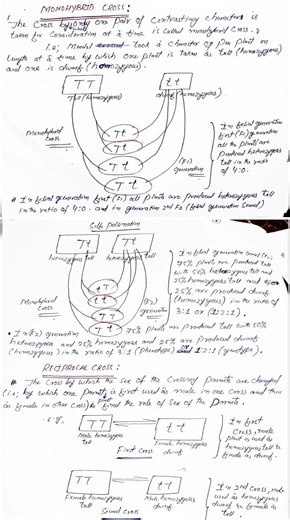 MONOHYBRID CROSS:
The Cross by only one pair of Contrasting characters is
taken for Consideration at a time is called monohybrid Cross.
i.e; Mendel took a character of Pea plant on
Length at a time by which one plant is taken as tall (homozygous)
and one is dwarf (homozygous).
TT
tt
Tall (homozygous)
dwarf (homozygous)
Monohybrid
Cross
Tt
Tt
Tt
Tt
(F1)
generation
In filial generation
first (F1) all
plants are
produced heterozygous
tall in the ratio
of 4:0.
# In filial generation first (F1) all plants are produced heterozygous tall
in the ratio of 4:0. and in generation 2nd F2 (filial generation Second)
Self Pollination
Tt
Tt
heterozygous tall
heterozygous tall
Monohybrid
Cross
TT
Tt
Tt
(F2)
generation
In filial generation second (F2)
75% plants are produced tall
with 50% heterozygous tall and
25% homozygous tall and
25% are produced dwarf
(homozygous) in the ratio of
3:1 or (1:2:1).
In (F2) generation 75% plants are produced tall with 50%
heterozygous and 25% homozygous and 25% are produced dwarf
(homozygous) in the ratio of 3:1 (Phenotype) or 1:2:1 (genotype).
RECIPROCAL CROSS:
# The Cross by which the sex of the Crossing Parents are changed
(i.e; by which one Parent is first used as male in one cross and then
as female in other cross) to find the role of Sex of the Parents.
e.g,
TT
tt
Male homozygous
tall
Female homozygous
dwarf
First Cross
In first
Cross, male
plant is used as
homozygous tall to
female as dwarf.
TT
tt
Female homozygous
tall
Male homozygous
dwarf
Second Cross
In 2nd Cross, male
used as homozygous
dwarf to female as
tall.